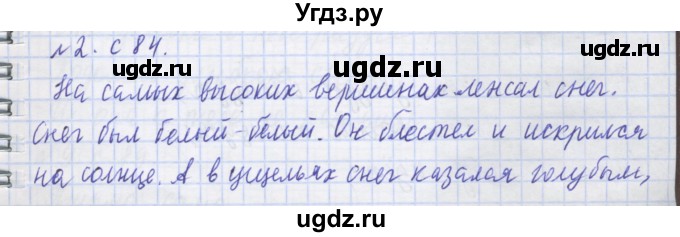 Угдз.ру
№2. с 84.
ugdz.ru ugdz.ru
На самых высоких вершинах лежал снег.
ugdz.ru
Снег был белый-белый. Он блестел и искрился
на солнце. А в ущельях снег казался голубым,
ugdz.ru ugdz.ru